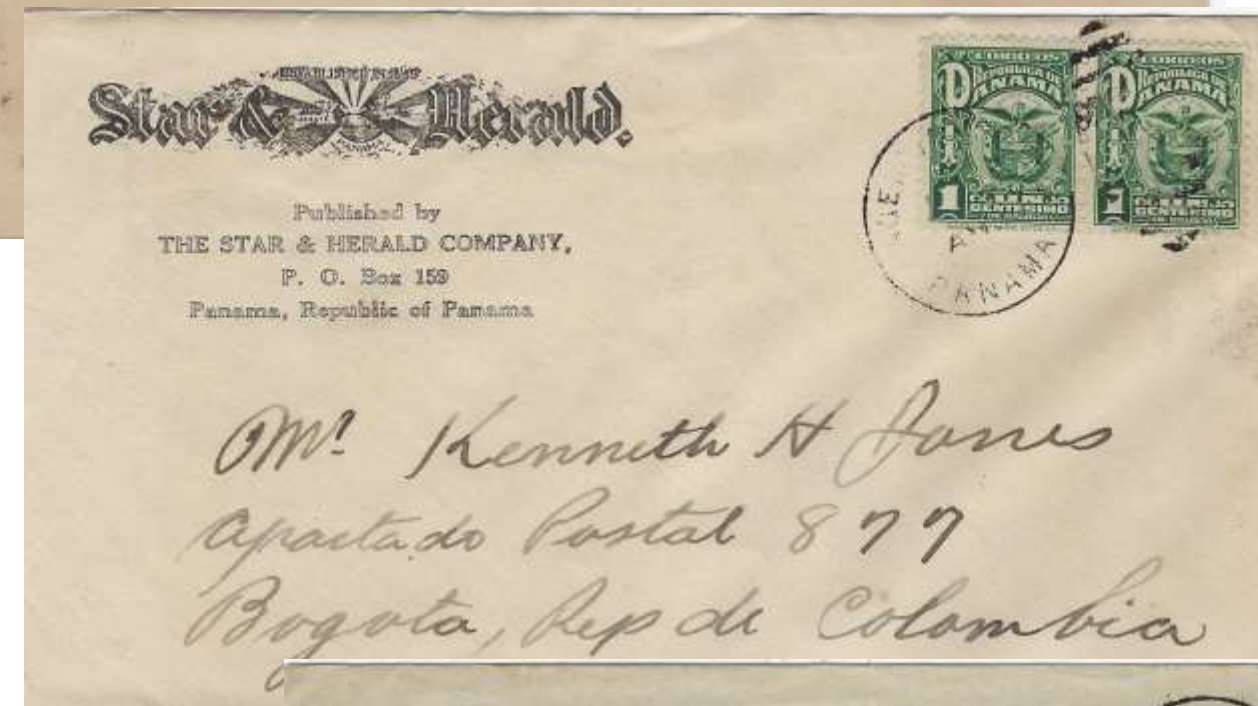 Star & Herald.
PANAMA
Published by
THE STAR & HERALD COMPANY,
P. O. Box 159
Panama, Republic of Panama
CORREOS
REPUBLICA DE
PANAMA
1
UN
CENTESIMO
CORREOS
REPUBLICA DE
PANAMA
1
UN
CENTESIMO
PANAMA
Mr. Kenneth H Jones
Apartado Postal 877
Bogota, Rep de Colombia